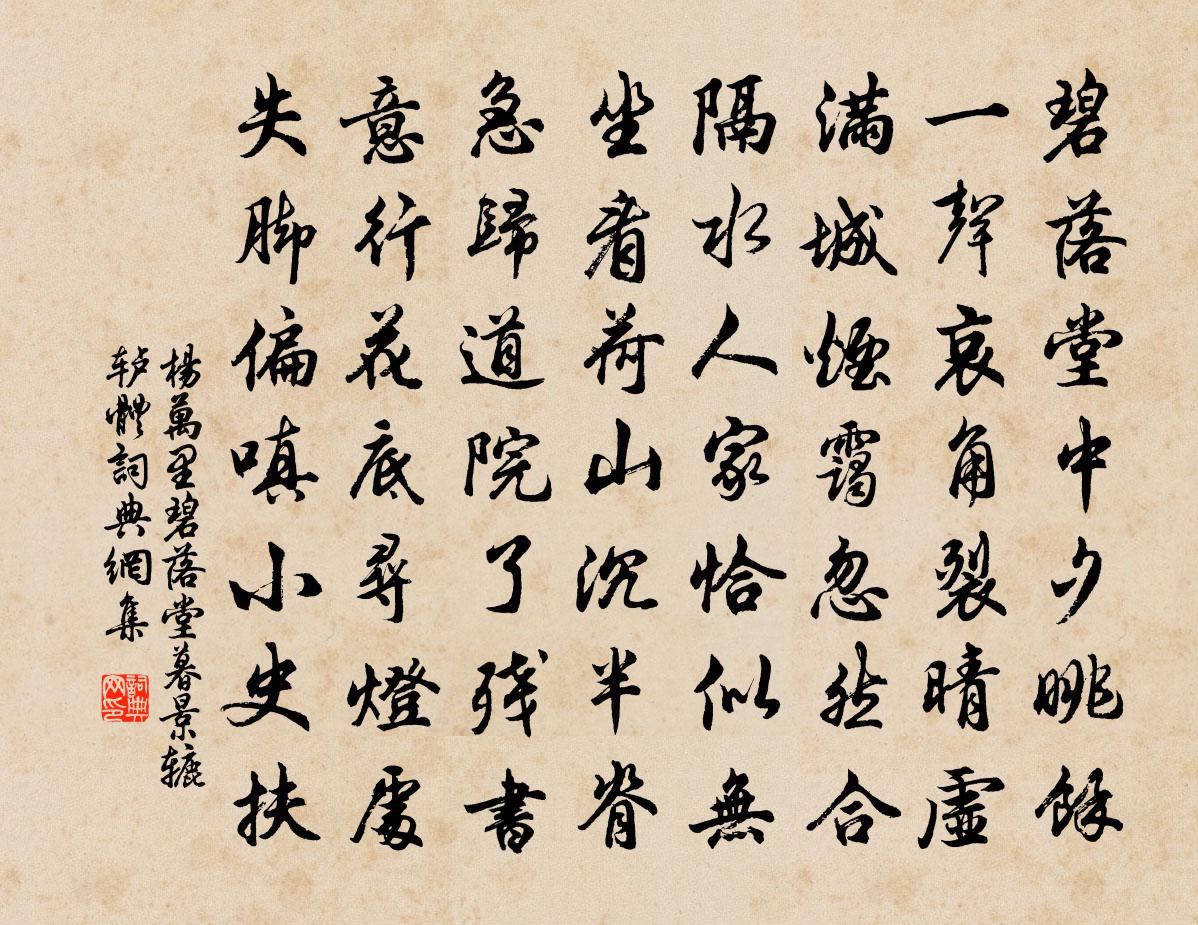 碧落堂中夕眺餘
一聲哀角裂晴虛
滿城煙靄忽然合
隔水人家恰似無
坐看荷山沉半脊
急歸道院了残書
意行花底尋燈處
失脚偏嗔小史扶
楊萬里碧落堂暮景辘
轳體詞典網集
詞典网印